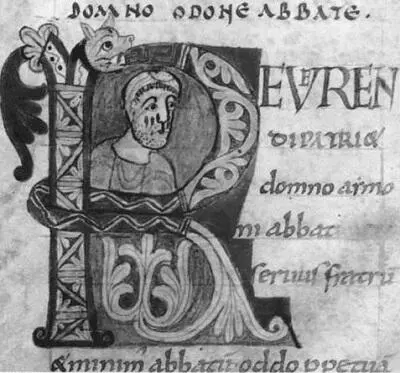 DOMNO ODONE ABBATE.
REVEREN
DI PATRI &
domno armo
ni abbat
seruus fratrũ
& minim abbatũ oddo ppetuã